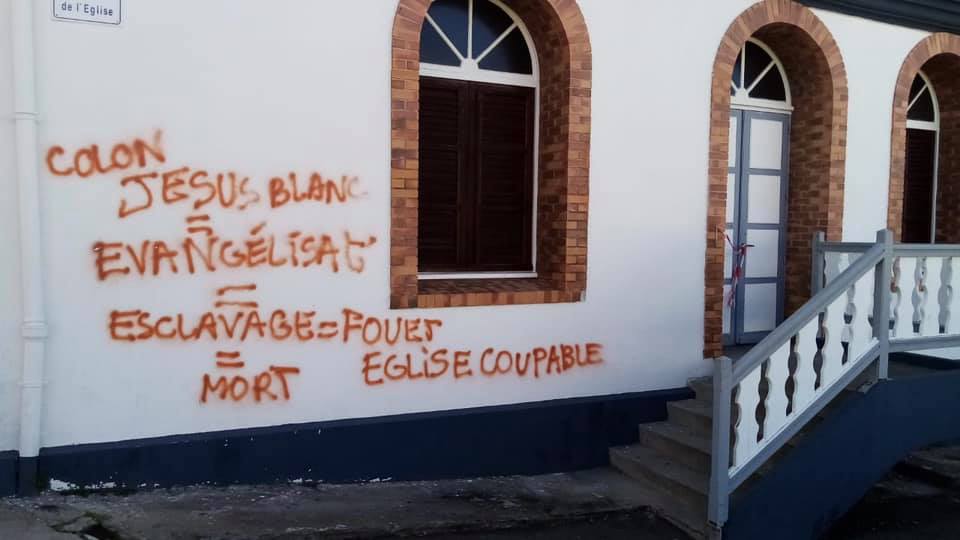 de l'Eglise
COLON
JESUS BLANC
=
EVANGÉLISAT
=
ESCLAVAGE = FOUET
=
MORT
EGLISE COUPABLE